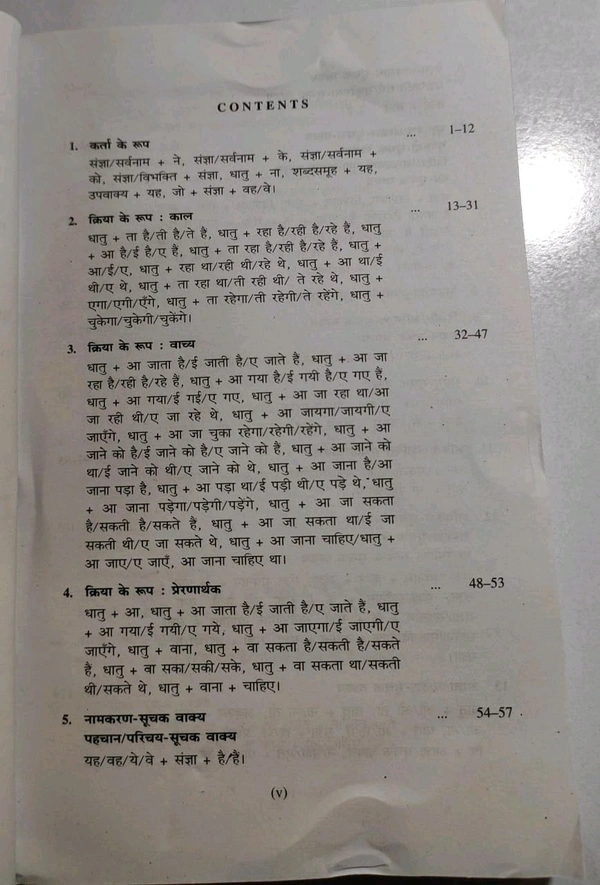 CONTENTS
1. कर्ता के रूप ... 1–12
संज्ञा/सर्वनाम + ने, संज्ञा/सर्वनाम + के, संज्ञा/सर्वनाम +
को, संज्ञा/विभक्ति + संज्ञा, धातु + ना, शब्दसमूह + यह,
उपवाक्य + यह, जो + संज्ञा + वह/वे।
2. क्रिया के रूप : काल ... 13–31
धातु + ता है/ती है/ते हैं, धातु + रहा है/रही है/रहे हैं, धातु
+ आ है/ई है/ए हैं, धातु + ता रहा है/रही है/रहे हैं, धातु +
आ/ई/ए, धातु + रहा था/रही थी/रहे थे, धातु + आ था/ई
थी/ए थे, धातु + ता रहा था/ती रही थी/ ते रहे थे, धातु +
एगा/एगी/एँगे, धातु + ता रहेगा/ती रहेगी/ते रहेंगे, धातु +
चुकेगा/चुकेगी/चुकेंगे।
3. क्रिया के रूप : वाच्य ... 32–47
धातु + आ जाता है/ई जाती है/ए जाते हैं, धातु + आ जा
रहा है/रही है/रहे हैं, धातु + आ गया है/ई गयी है/ए गए हैं,
धातु + आ गया/ई गई/ए गए, धातु + आ जा रहा था/आ
जा रही थी/ए जा रहे थे, धातु + आ जायगा/जायगी/ए
जाएँगे, धातु + आ जा चुका रहेगा/रहेगी/रहेंगे, धातु + आ
जाने को है/ई जाने को है/ए जाने को हैं, धातु + आ जाने को
था/ई जाने को थी/ए जाने को थे, धातु + आ जाना है/आ
जाना पड़ा है, धातु + आ पड़ा था/ई पड़ी थी/ए पड़े थे, धातु
+ आ जाना पड़ेगा/पड़ेगी/पड़ेंगे, धातु + आ जा सकता
है/सकती है/सकते हैं, धातु + आ जा सकता था/ई जा
सकती थी/ए जा सकते थे, धातु + आ जाना चाहिए/धातु +
आ जाए/ए जाएँ, आ जाना चाहिए था।
4. क्रिया के रूप : प्रेरणार्थक ... 48–53
धातु + आ, धातु + आ जाता है/ई जाती है/ए जाते हैं, धातु
+ आ गया/ई गयी/ए गये, धातु + आ जाएगा/ई जाएगी/ए
जाएँगे, धातु + वाना, धातु + वा सकता है/सकती है/सकते
हैं, धातु + वा सका/सकी/सके, धातु + वा सकता था/सकती
थी/सकते थे, धातु + वाना + चाहिए।
5. नामकरण-सूचक वाक्य ... 54–57
पहचान/परिचय-सूचक वाक्य
यह/वह/ये/वे + संज्ञा + है/हैं।
(v)